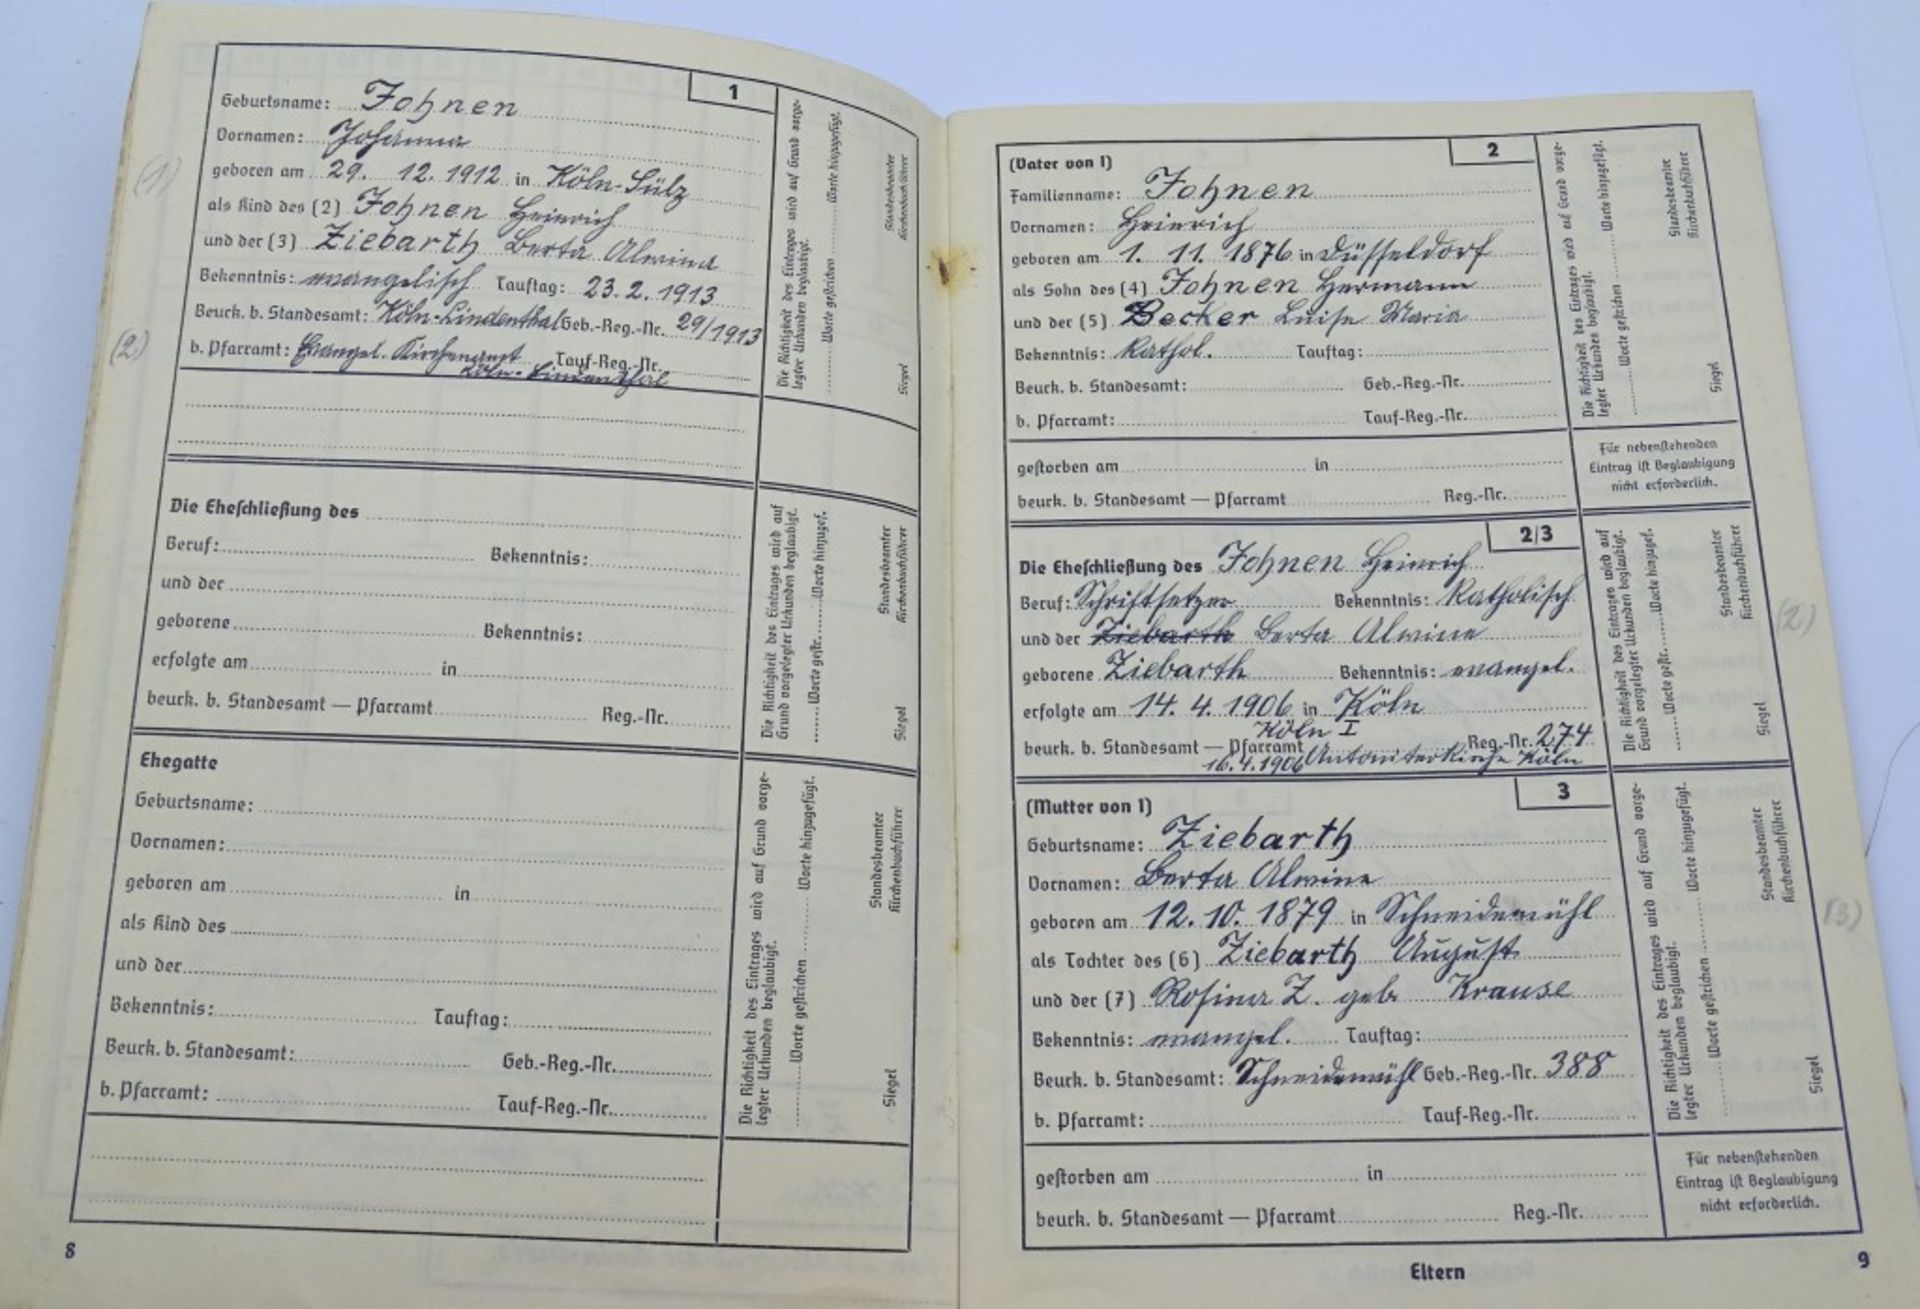 1
Geburtsname: Fohnen
Vornamen: Johanna
geboren am 29. 12. 1912 in Köln-Sülz
als Kind des (2) Fohnen Heinrich
und der (3) Ziebarth Berta Alwina
Bekenntnis: evangelisch Tauftag: 23.2.1913
Beurk. b. Standesamt: Köln-Lindenthal Geb.-Reg.-Nr. 29/1913
b. Pfarramt: Evangel. Kirchenamt Tauf-Reg.-Nr.
Köln-Lindenthal
(1)
(2)
Die Richtigkeit des Eintrages wird auf Grund vorge-
legter Urkunden beglaubigt.
Worte gestrichen Worte hinzugefügt.
Siegel Standesbeamter
Kirchenbuchführer
Die Eheschließung des
Beruf: Bekenntnis:
und der
geborene Bekenntnis:
erfolgte am in
beurk. b. Standesamt — Pfarramt Reg.-Nr.
Die Richtigkeit des Eintrages wird auf
Grund vorgelegter Urkunden beglaubigt.
Worte gestr. Worte hinzugef.
Siegel Standesbeamter
Kirchenbuchführer
Ehegatte
Geburtsname:
Vornamen:
geboren am in
als Kind des
und der
Bekenntnis: Tauftag:
Beurk. b. Standesamt: Geb.-Reg.-Nr.
b. Pfarramt: Tauf-Reg.-Nr.
Die Richtigkeit des Eintrages wird auf Grund vorge-
legter Urkunden beglaubigt.
Worte gestrichen Worte hinzugefügt.
Siegel Standesbeamter
Kirchenbuchführer
8
2
(Vater von 1)
Familienname: Fohnen
Vornamen: Heinrich
geboren am 1. 11. 1876 in Düsseldorf
als Sohn des (4) Fohnen Hermann
und der (5) Becker Luise Maria
Bekenntnis: Kathol. Tauftag:
Beurk. b. Standesamt: Geb.-Reg.-Nr.
b. Pfarramt: Tauf-Reg.-Nr.
gestorben am in
beurk. b. Standesamt — Pfarramt Reg.-Nr.
Die Richtigkeit des Eintrages wird auf Grund vorge-
legter Urkunden beglaubigt.
Worte gestrichen Worte hinzugefügt.
Siegel Standesbeamter
Kirchenbuchführer
Für nebenstehenden
Eintrag ist Beglaubigung
nicht erforderlich.
2/3
Die Eheschließung des Fohnen Heinrich
Beruf: Schriftsetzer Bekenntnis: Katholisch
und der Ziebarth Berta Alwine
geborene Ziebarth Bekenntnis: evangel.
erfolgte am 14. 4. 1906 in Köln
Köln I
beurk. b. Standesamt — Pfarramt Reg.-Nr. 274
16.4.1906 Antoniterkirche Köln
Die Richtigkeit des Eintrages wird auf
Grund vorgelegter Urkunden beglaubigt.
Worte gestr. Worte hinzugef.
Siegel Standesbeamter
Kirchenbuchführer
(2)
3
(Mutter von 1)
Geburtsname: Ziebarth
Vornamen: Berta Alwine
geboren am 12. 10. 1879 in Schneidemühl
als Tochter des (6) Ziebarth August
und der (7) Rosina Z. geb. Krause
Bekenntnis: evangel. Tauftag:
Beurk. b. Standesamt: Schneidemühl Geb.-Reg.-Nr. 388
b. Pfarramt: Tauf-Reg.-Nr.
gestorben am in
beurk. b. Standesamt — Pfarramt Reg.-Nr.
Die Richtigkeit des Eintrages wird auf Grund vorge-
legter Urkunden beglaubigt.
Worte gestrichen Worte hinzugefügt.
Siegel Standesbeamter
Kirchenbuchführer
(3)
Für nebenstehenden
Eintrag ist Beglaubigung
nicht erforderlich.
Eltern
9